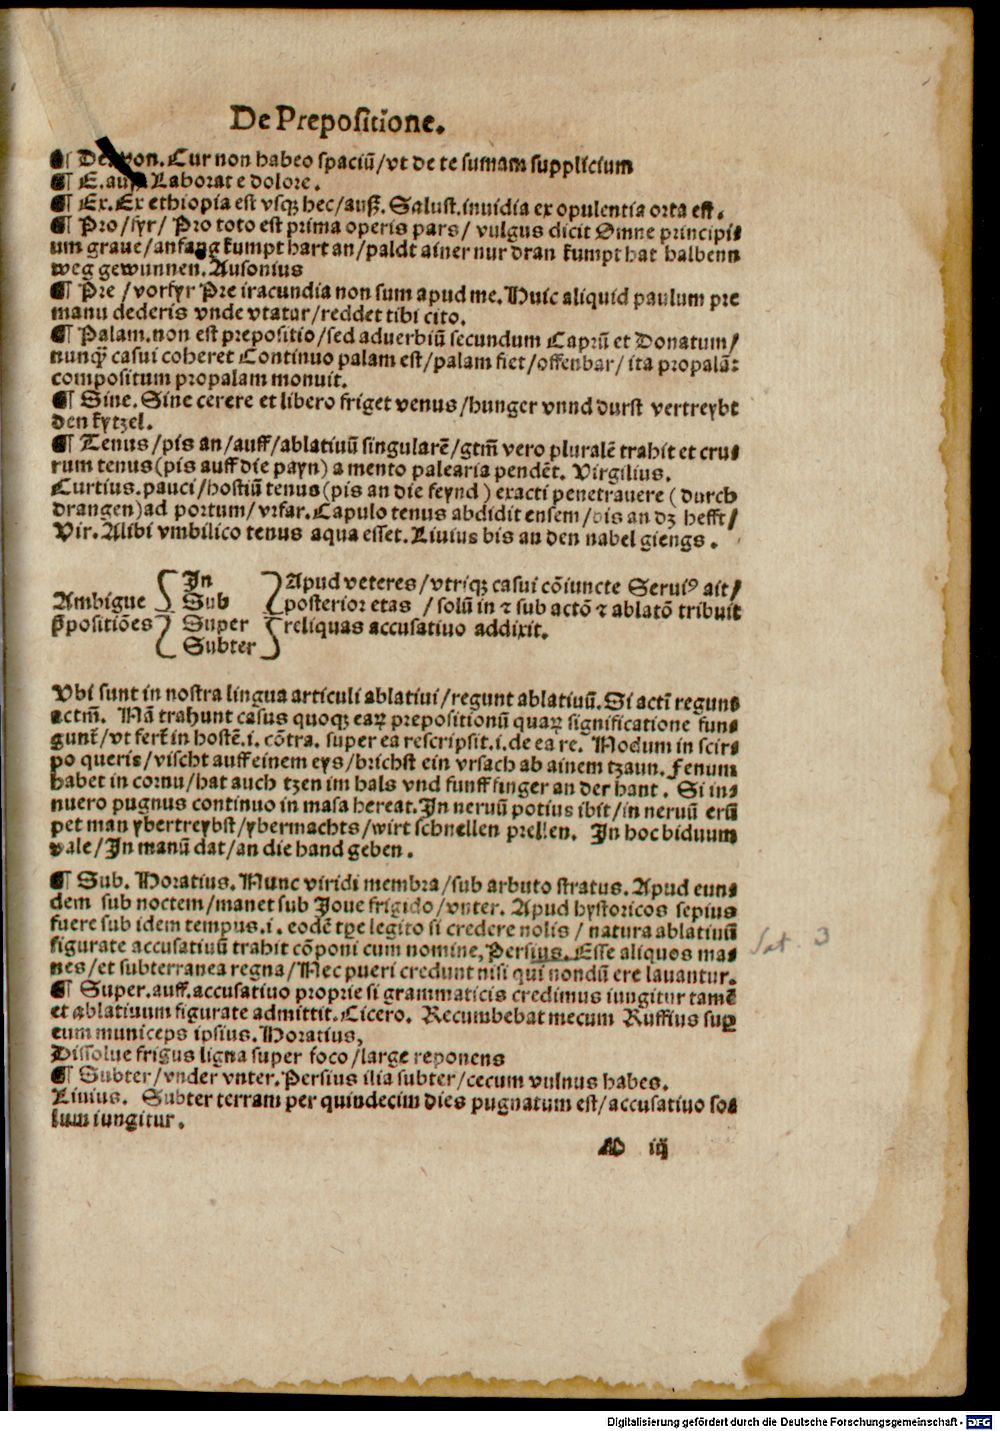 De Prepositione.
¶ De. von. Cur non habeo spaciū/vt de te sumam supplicium
¶ E. auß Laborat e dolore.
¶ Ex. Ex ethiopia est vsqꝫ hec/auß. Salust. inuidia ex opulentia orta est.
¶ Pro/fyr/ Pro toto est prima operis pars/ vulgus dicit Omne principi⸗
um graue/anfang kumpt hart an/paldt ainer nur dran kumpt hat halbenn
weg gewunnen. Ausonius
¶ Pre /vorfyr Pre iracundia non sum apud me. Huic aliquid paulum pre
manu dederis vnde vtatur/reddet tibi cito.
¶ Palam. non est prepositio/sed aduerbiū secundum Caprū et Donatum/
nunqͣ casui coheret Continuo palam est/palam fiet/offenbar/ ita propalā⸗
compositum propalam monuit.
¶ Sine. Sine cerere et libero friget venus/hunger vnnd durst vertreybt
den kytzel.
¶ Tenus/pis an/auff/ablatiuū singularē/gtm̄ vero pluralē trahit et cru⸗
rum tenus(pis auff die payn) a mento palearia pendēt. Virgilius.
Curtius. pauci/hostiū tenus(pis an die feynd) exacti penetrauere (durch
drangen)ad portum/vrfar. Capulo tenus abdidit ensem/bis an dz hefft/
Vir. Alibi vmbilico tenus aqua esset. Liuius bis an den nabel giengs.
Ambigue p̄positiōes
In
Sub
Super
Subter
Apud veteres/vtriqꝫ casui cōiuncte Seruiꝰ ait/
posterior etas /solū in ⁊ sub actō ⁊ ablatō tribuit
reliquas accusatiuo addixit.
Vbi sunt in nostra lingua articuli ablatiui/regunt ablatiuū. Si acti regunt
actm̄. Nā trahunt casus quoqꝫ eaꝝ prepositionū quaꝝ significatione fun⸗
gunt̄/vt fert̄ in hostē. i. cōtra. super ea rescripsit. i. de ea re. Nodum in scir⸗
po queris/vischt auff einem eys/brichst ein vrsach ab ainem tzaun. Fenum
habet in cornu/hat auch tzen im hals vnd funff finger an der hant. Si in⸗
nuero pugnus continuo in masa hereat. In neruū potius ibit/in neruū erū
pet man ybertreybst/ybermachts/wirt schnellen prellen. In hoc biduum
vale/In manū dat/an die hand geben.
¶ Sub. Horatius. Nunc viridi membra/sub arbuto stratus. Apud eun⸗
dem sub noctem/manet sub Joue frigido/vnter. Apud hystoricos sepius
fuere sub idem tempus. i. eodē tꝑe legito si credere nolis/ natura ablatiuū
figurate accusatiuū trahit cōponi cum nomine, Persius. Esse aliquos ma⸗
nes/et subterranea regna/Nec pueri credunt nisi qui nondū ere lauantur.
¶ Super. auff. accusatiuo proprie si grammaticis credimus iungitur tamē
et ablatiuum figurate admittit. Cicero. Recumbebat mecum Ruffius suꝑ
eum municeps ipsius. Horatius,
Dissolue frigus ligna super foco/large reponens
¶ Subter/vnder vnter. Persius ilia subter/cecum vulnus habes.
Liuius. Subter terram per quindecim dies pugnatum est/accusatiuo so⸗
lum iungitur.
iij
Sat. 3
Digitalisierung gefördert durch die Deutsche Forschungsgemeinschaft - DFG